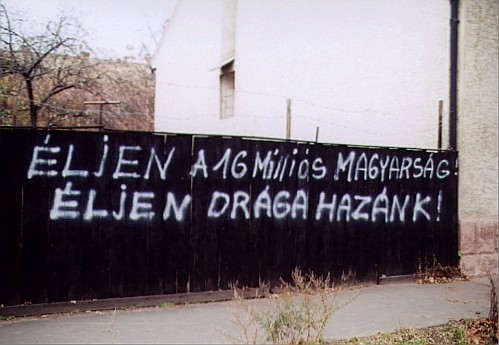 ÉLjEN A 16 MilliÓS MAGYARSÁG!
ÉLjEN DRÁGA HAZÁNK!